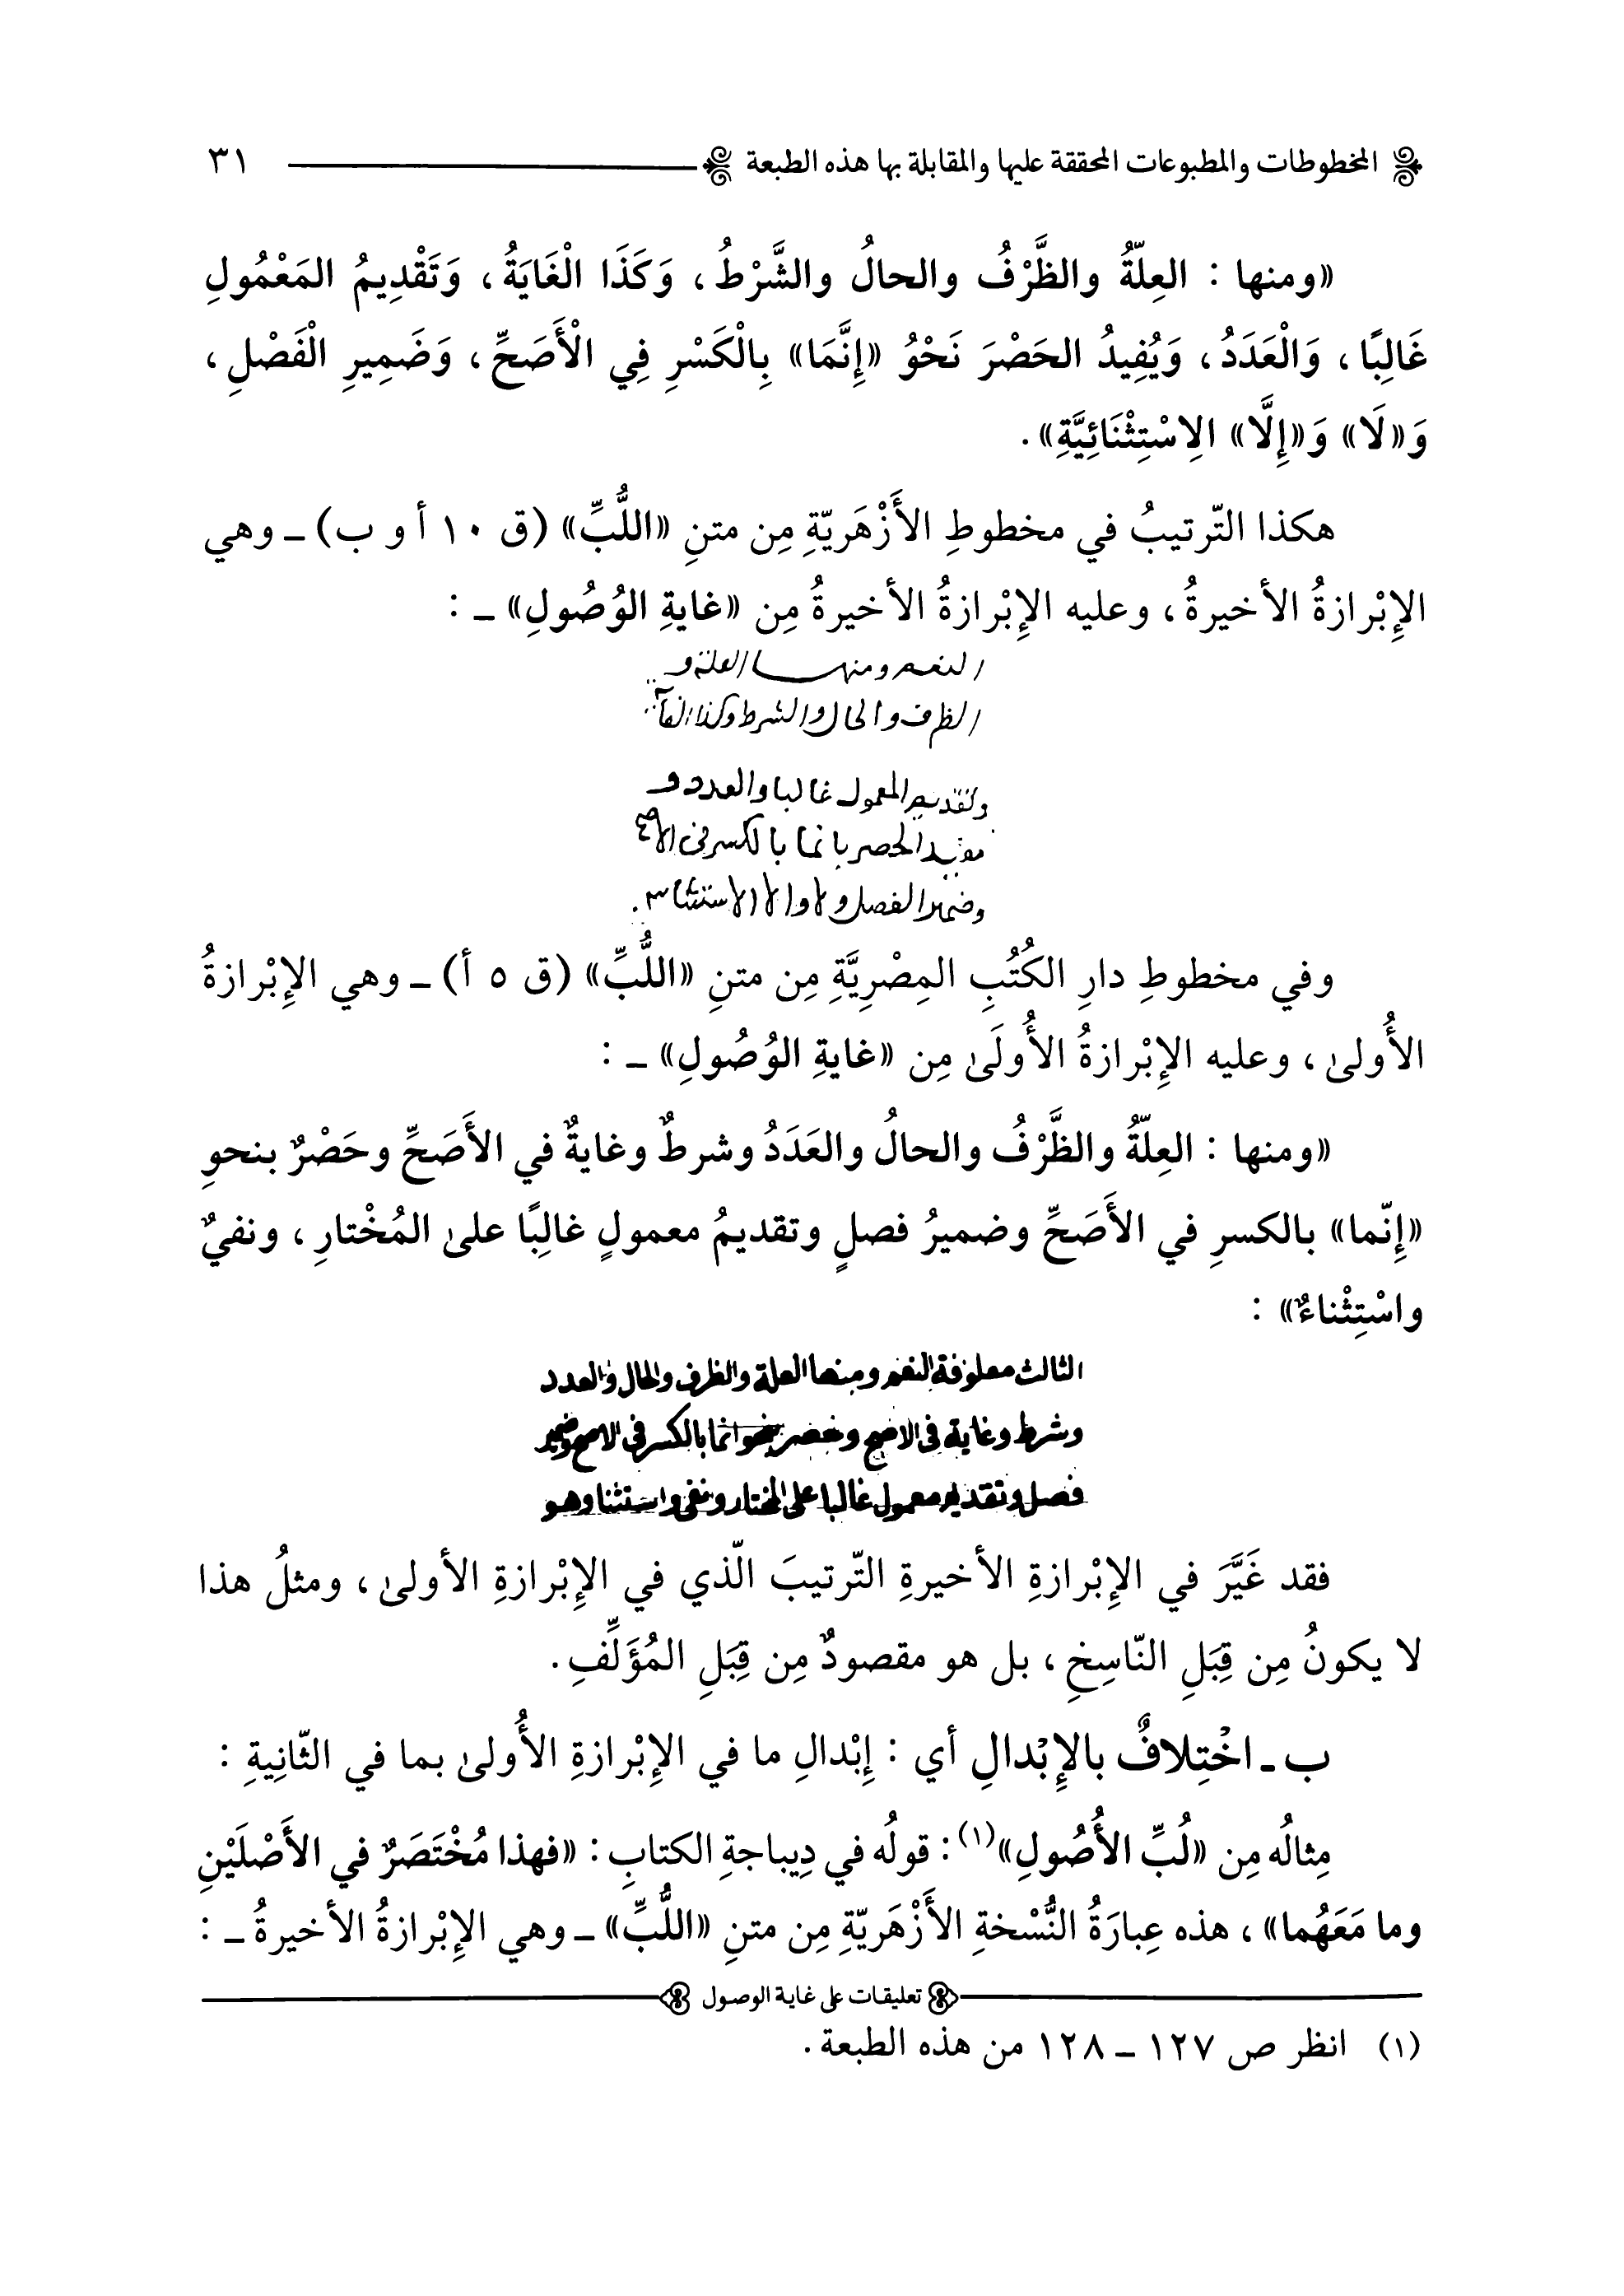 المخطوطات والمطبوعات المحققة عليها والمقابلة بها هذه الطبعة ٣١
«ومنها : العِلّةُ والظَّرْفُ والحالُ والشَّرْطُ ، وَكَذَا الْغَايَةُ ، وَتَقْدِيمُ المَعْمُولِ
غَالِبًا ، وَالْعَدَدُ ، وَيُفِيدُ الحَصْرَ نَحْوُ «إِنَّمَا» بِالْكَسْرِ فِي الْأَصَحِّ ، وَضَمِيرِ الْفَصْلِ ،
وَ«لَا» وَ«إِلَّا» الِاسْتِثْنَائِيَّةِ» .
هكذا التّرتيبُ في مخطوطِ الأَزْهَرِيّةِ مِن متنِ «اللُّبِّ» (ق ١٠ أ و ب) ـ وهي
الإِبْرازةُ الأخيرةُ ، وعليه الإِبْرازةُ الأخيرةُ مِن «غايةِ الوُصُولِ» ـ :
النعم ومنها العلة و
الظرف والحال والشرط وكذا الغاية
وتقديم المعمول غالبا والعدد و
يفيد الحصر بانما بالكسر في الاصح
وضمير الفصل ولا والا الاستثنائية
وفي مخطوطِ دارِ الكُتُبِ المِصْرِيَّةِ مِن متنِ «اللُّبِّ» (ق ٥ أ) ـ وهي الإِبْرازةُ
الأُولىٰ ، وعليه الإِبْرازةُ الأُولَىٰ مِن «غايةِ الوُصُولِ» ـ :
«ومنها : العِلّةُ والظَّرْفُ والحالُ والعَدَدُ وشرطٌ وغايةٌ في الأَصَحِّ وحَصْرٌ بنحوِ
«إِنّما» بالكسرِ في الأَصَحِّ وضميرُ فصلٍ وتقديمُ معمولٍ غالِبًا على المُخْتارِ ، ونفيٌ
واسْتِثْناءٌ» :
الثالث معلوفة النعم ومنها العلة والظرف والحال والعدد
وشرط وغاية في الاصح وحصر بنحو انما بالكسر في الاصح وضمير
فصل وتقديم معمول غالبا على المختار ونفي واستثنا وهو
فقد غَيَّرَ في الإِبْرازةِ الأخيرةِ التّرتيبَ الّذي في الإِبْرازةِ الأولىٰ ، ومثلُ هذا
لا يكونُ مِن قِبَلِ النّاسِخِ ، بل هو مقصودٌ مِن قِبَلِ المُؤَلِّفِ .
ب ـ اخْتِلافٌ بالإِبْدالِ أي : إِبْدالِ ما في الإِبْرازةِ الأُولىٰ بما في الثّانِيةِ :
مِثالُه مِن «لُبِّ الأُصُولِ»(١) : قولُه في دِيباجةِ الكتابِ : «فهذا مُخْتَصَرٌ في الأَصْلَيْنِ
وما مَعَهُما» ، هذه عِبارَةُ النُّسْخةِ الأَزْهَرِيّةِ مِن متنِ «اللُّبِّ» ـ وهي الإِبْرازةُ الأخيرةُ ـ :
تعليقات على غاية الوصول
(١) انظر ص ١٢٧ ـ ١٢٨ من هذه الطبعة .